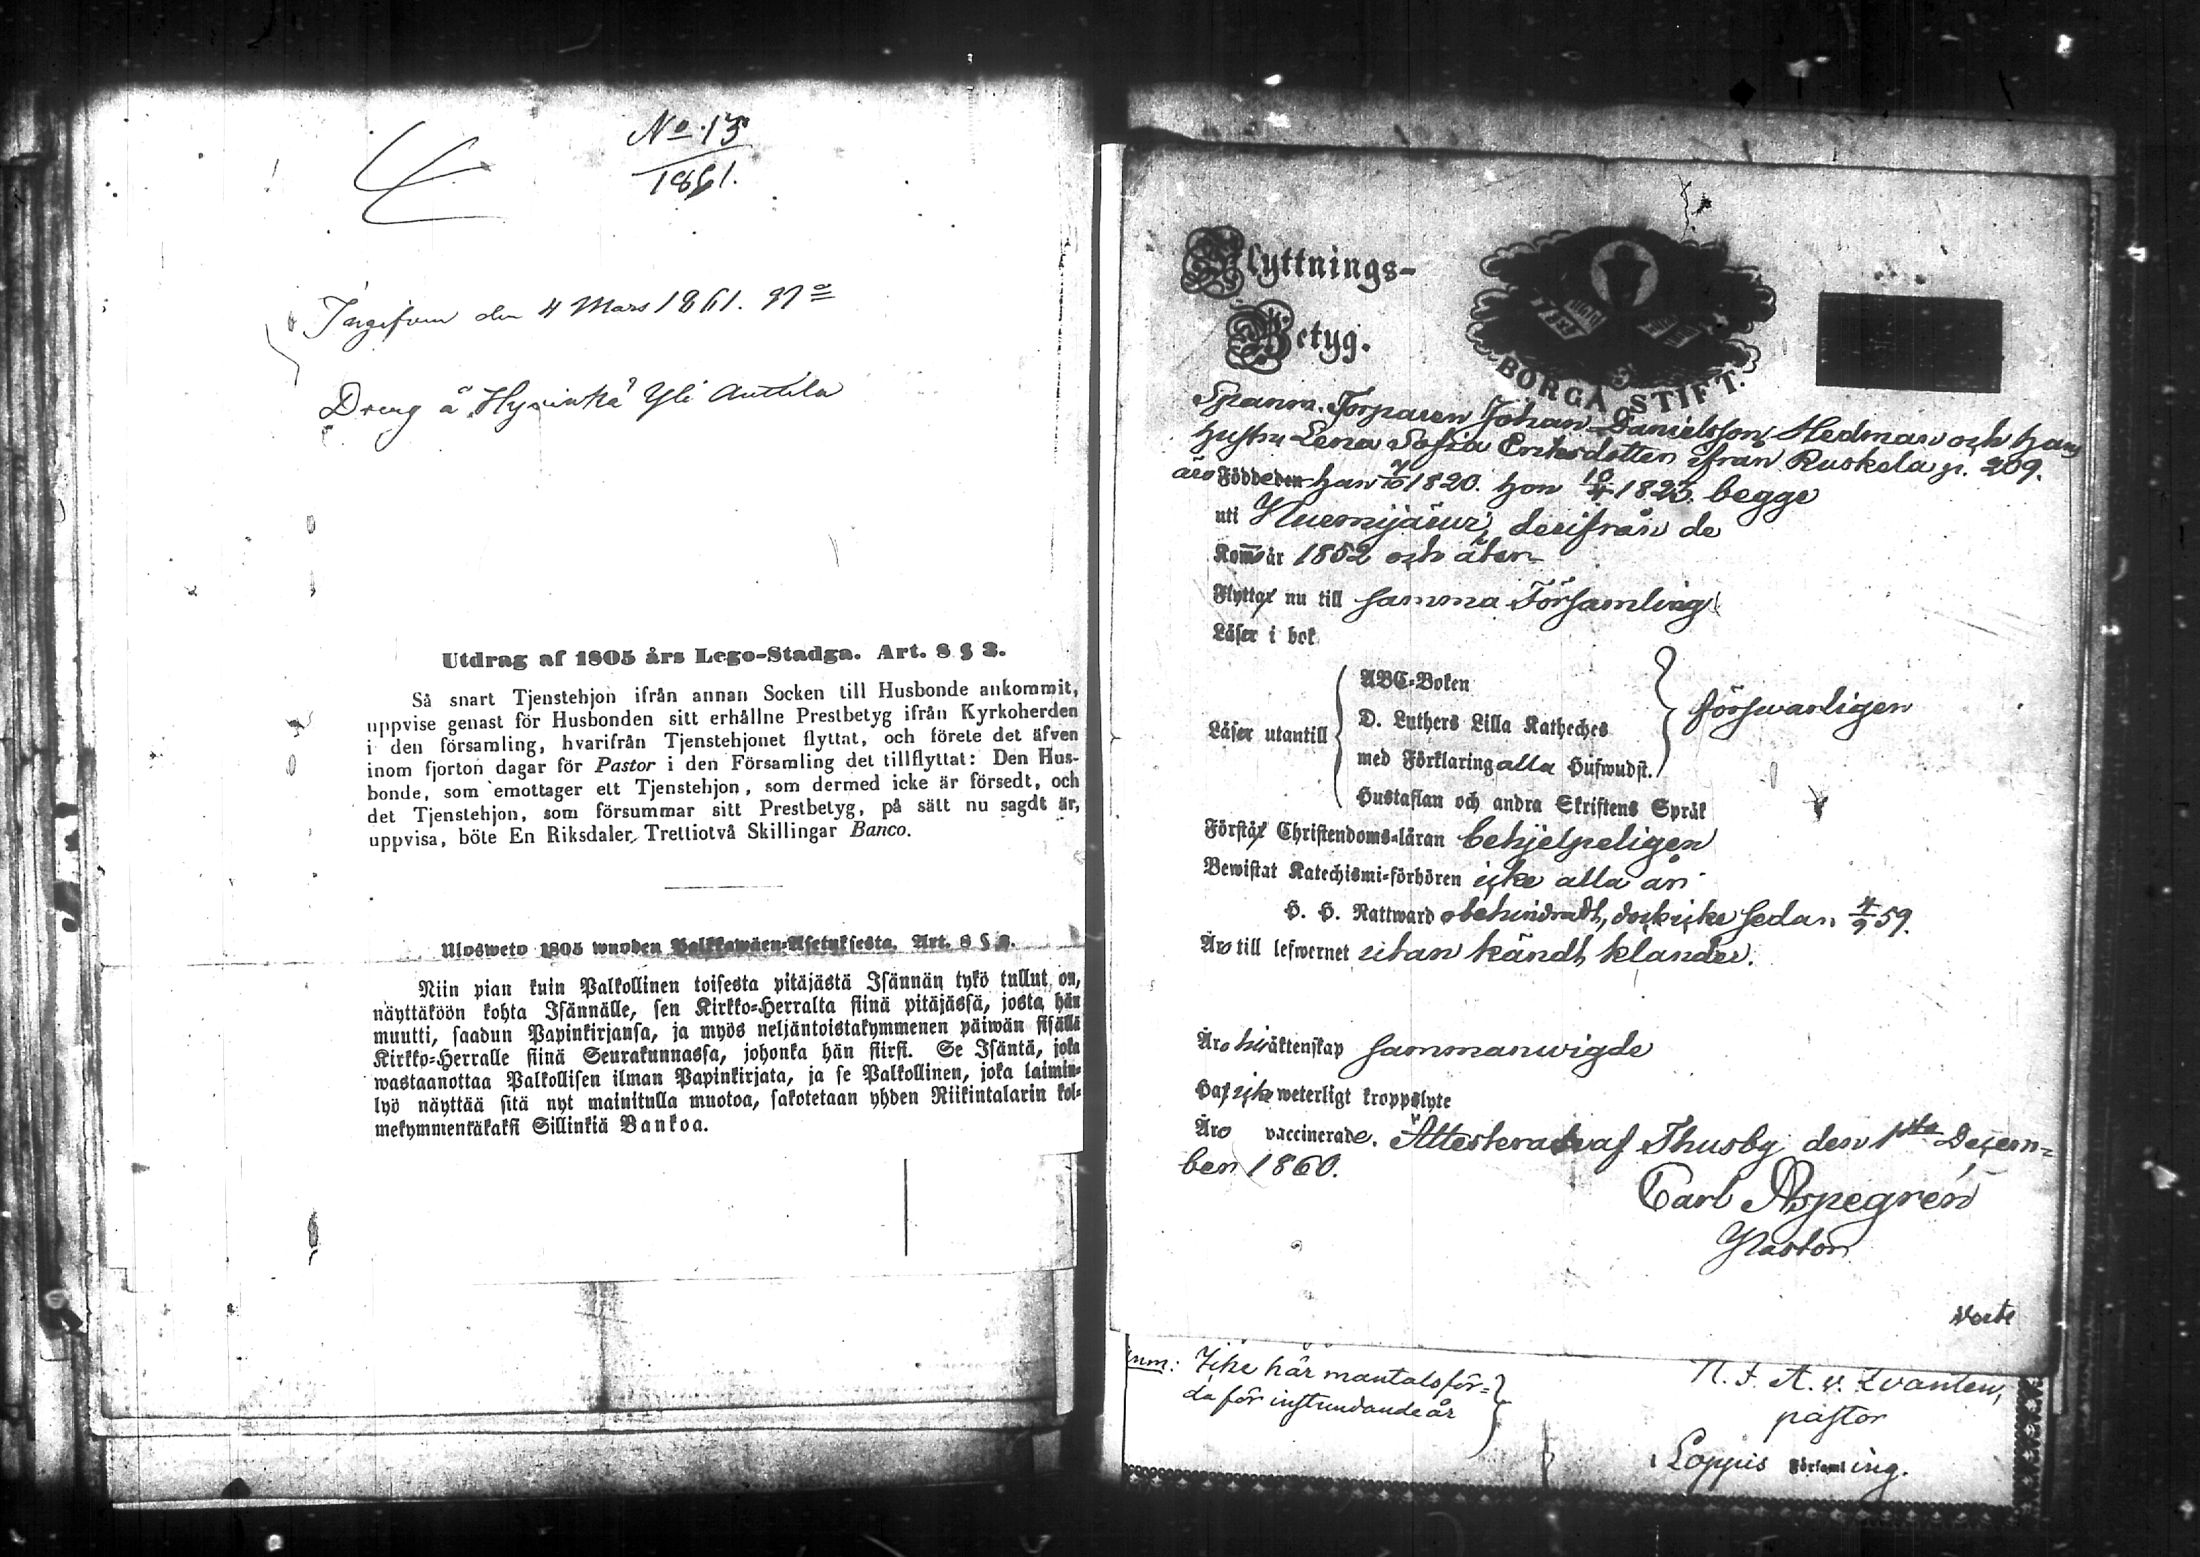 No. 13
1861.
Ingifven den 4 Mars 1861.
Dreng å Hyvinkä Yli Anttila
Utdrag af 1805 års Lego-Stadga. Art. 8 § 2.
Så snart Tjenstehjon ifrån annan Socken till Husbonde ankommit,
uppvise genast för Husbonden sitt erhållne Prestbetyg ifrån Kyrkoherden
i den församling, hvarifrån Tjenstehjonet flyttat, och förete det äfven
inom fjorton dagar för Pastor i den Församling det tillflyttat: Den Hus-
bonde, som emottager ett Tjenstehjon, som dermed icke är försedt, och
det Tjenstehjon, som försummar sitt Prestbetyg, på sätt nu sagdt är,
uppvisa, böte En Riksdaler Trettiotvå Skillingar Banco.
Ulosweto 1805 wuoden Palkkawäen-Asetuksesta. Art. 8 § 2.
Niin pian kuin Palkollinen toisesta pitäjästä Isännän tykö tullut on,
näyttäköön kohta Isännälle, sen Kirkko-Herralta siinä pitäjässä, josta hän
muutti, saadun Papinkirjansa, ja myös neljäntoistakymmenen päiwän sisällä
Kirkko-Herralle siinä Seurakunnassa, johonka hän siirsi. Se Isäntä, joka
wastaanottaa Palkollisen ilman Papinkirjata, ja se Palkollinen, joka laimin-
lyö näyttää sitä nyt mainitulla muotoa, sakotetaan yhden Riikintalarin kol-
mekymmentäkaksi Sillinkiä Bankoa.
Flyttnings-
Betyg.
BORGÅ STIFT.
Spanm. Torparen Johan Danielsson Hedman och hans
hustru Lena Sofia Eriksdotter ifrån Ruskela p. 209.
äro Födde den han 7/10 1820. hon 10/4 1823. begge
uti Nurmijärvi, derifrån de
Kom̄o år 1852 och åter-
Flyttar nu till samma Församling
Läser i bok
Läser utantill
ABC-Boken
D. Luthers Lilla Katheches
med Förklaring alla Hufwudst.
Hustaflan och andra Skriftens Språk
försvarligen
Förstår Christendoms-läran behjelpeligen
Bewistat Katechismi-förhören icke alla år
H. H. Nattward obehindradt, dock icke sedan 4/9 59.
Äro till lefwernet utan kändt klander.
Äro hi äktenskap sammanvigde
Haf icke weterligt kroppslyte
Äro vaccinerade. Attesteras af Thusby den 1sta Decem-
ber 1860.
Carl Aspegrén
Pastor
Verte
Anm: Icke här mantalsför-
da för instundande år
N. F. A. v. Qvanten,
pastor
Loppis Församling.